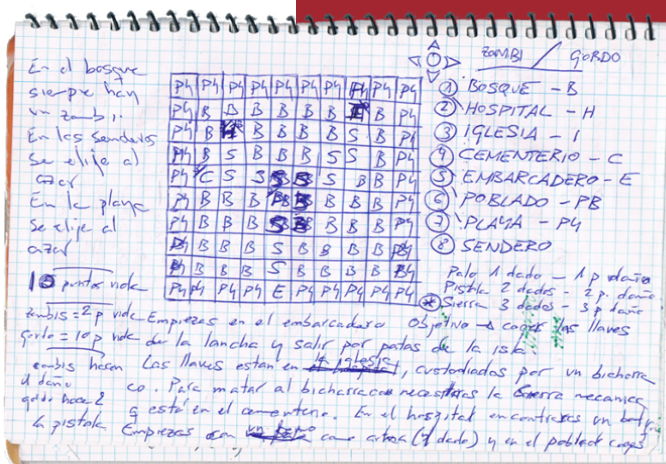 En el bosque
siempre hay
un zombi.
En los senderos
se elije al
azar
En la playa
se elije al
azar
10 puntos vida
zombis = 2 p vida
gordo = 10 p vida
zombis hacen
1 daño
gordo hace 2
ZOMBI / GORDO
P4 P4 P4 P4 P4 P4 P4 P4 P4 P4
P4 B B B B B B I B P4
P4 B H B B B B S B P4
P4 B S B B B S S B P4
P4 C S S S B S B B P4
P4 B B B PB B B B B P4
P4 B B B S B B B B P4
P4 B B B S B B B B P4
P4 B B B S B B B B P4
P4 P4 P4 P4 E P4 P4 P4 P4 P4
1 BOSQUE - B
2 HOSPITAL - H
3 IGLESIA - I
4 CEMENTERIO - C
5 EMBARCADERO - E
6 POBLADO - PB
7 PLAYA - P4
8 SENDERO
Palo 1 dado - 1 p daño
Pistola 2 dados - 2 p. daño
* Sierra 3 dados - 3 p daño
Empiezas en el embarcadero Objetivo → coger las llaves
de la lancha y salir por patas de la isla.
Las llaves estan en la iglesia, custodiados por un bicharra
co. Para matar al bicharraco necesitas la sierra mecanica
q está en el cementerio. En el hospital encontraras un
Empiezas con como arma (1 dado) y en el poblado coges
la pistola